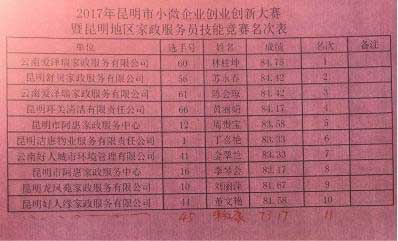 2017年昆明市小微企业创业创新大赛
暨昆明地区家政服务员技能竞赛名次表
单位 选手号 姓名 成绩 名次 备注
云南爱泽瑞家政服务有限公司 60 林桂坤 84.75 1
昆明舒贝家政服务有限公司 56 苏永春 84.42 2
云南爱泽瑞家政服务有限公司 61 84.42 3
昆明环美清洁有限责任公司 66 黄丽娟 84.17 4
昆明市阿惠家政服务中心 12 周贵宝 83.58 5
昆明洁惠物业服务有限责任公司 1 丁喜艳 83.33 6
云南好人城市环境管理有限公司 41 83.33 7
昆明市阿惠家政服务中心 16 李琴会 82.17 8
昆明龙凤苑家政服务有限公司 10 刘丽萍 81.67 9
昆明好人缘家政服务有限公司 44 董文艳 81.58 10
45 73.17 11